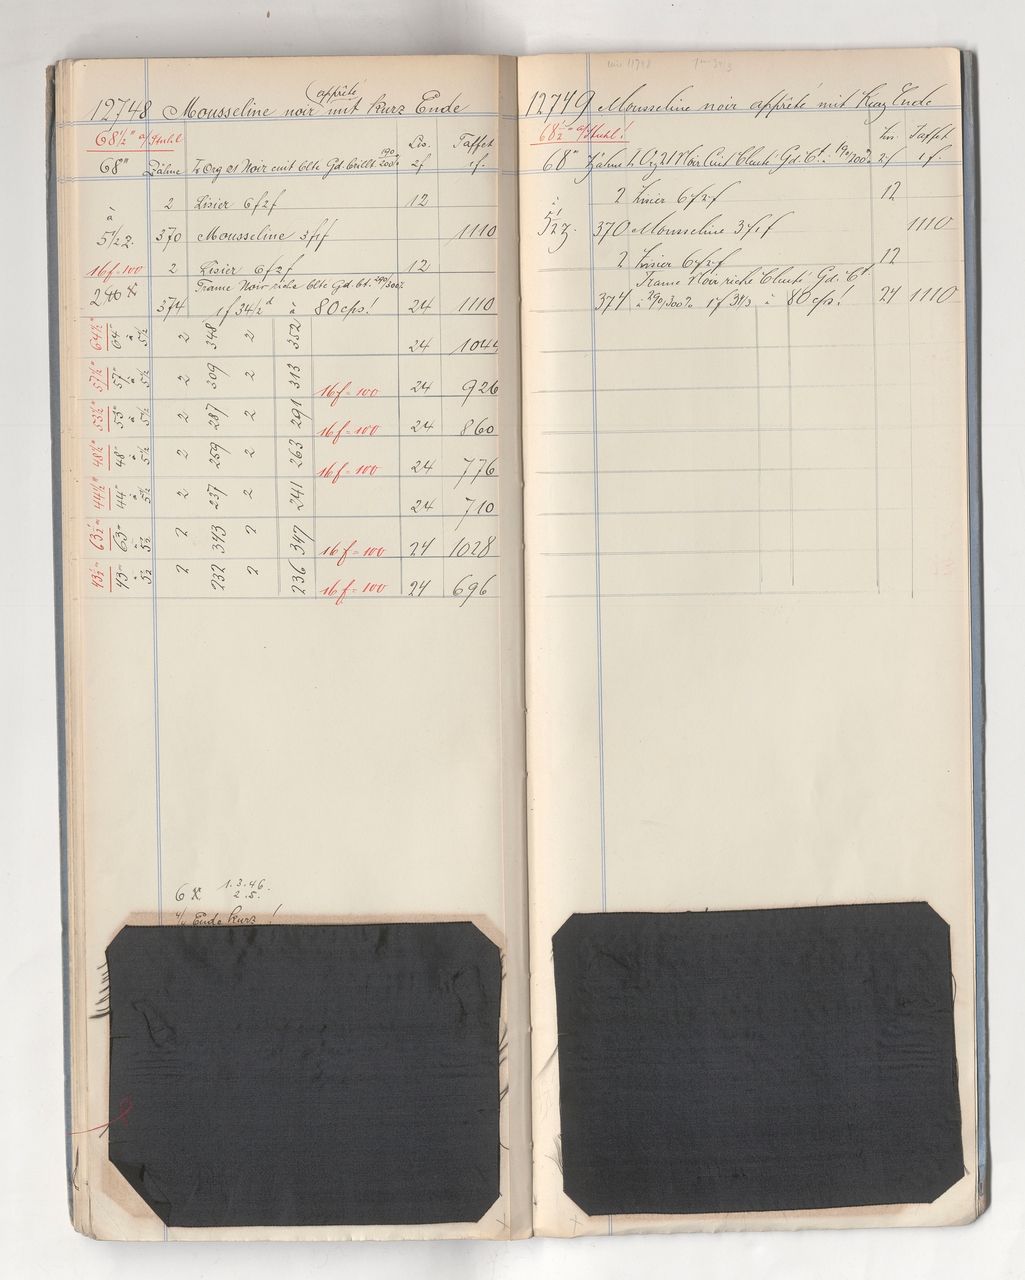 12748 Mousseline noir apprêté mit kurz Ende
68½" a/Stuhl Lis. Taffet
68" Zähne Org 21 Noir cuit Clte Gd. brillt 190/200% 2f 1f.
à 2 Lisier 6f2f 12
5½ z. 370 Mousseline 3f1f 1110
16f=100 2 Lisier 6f2f 12
Trame Noir riche Clte Gd. bt. 290/300%
240 374 1f 34½ d à 80 cps! 24 1110
64½" 64" à 5½ 2 348 2 352 24 1044
57½" 57" à 5½ 2 309 2 313 16f=100 24 926
53½" 53" à 5½ 2 287 2 291 16f=100 24 860
48½" 48" à 5½ 2 259 2 263 16f=100 24 776
44½" 44" à 5½ 2 237 2 241 24 710
63½" 63" à 5½ 2 343 2 347 16f=100 24 1028
43½" 43" à 5½ 2 232 2 236 16f=100 24 696
6 x 1.3.46.
2.5.
4/4 Ende kurz!
12749 Mousseline noir apprêté mit Kurz Ende
68½" a/Stuhl! Lis. Taffet
68" Zähne Org 21 Noir Cuit Cluté Gd. Ct. à 190/200% 2f 1f.
à 2 Lisier 6f2f 12
5½ z. 370 Mousseline 3f1f 1110
2 Lisier 6f2f 12
Trame Noir riche Cluté Gd. Ct.
374 à 290/300% 1f 31/3 à 80 cps! 24 1110